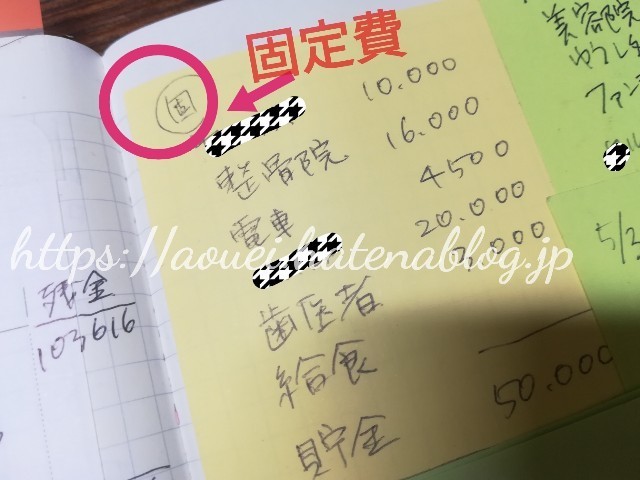 固定費
固
10.000
整骨院 16.000
電車 4500
20.000
歯医者
給食
貯金 50.000
残金
103616
美容院
ファン
https://aouei.hatenablog.jp